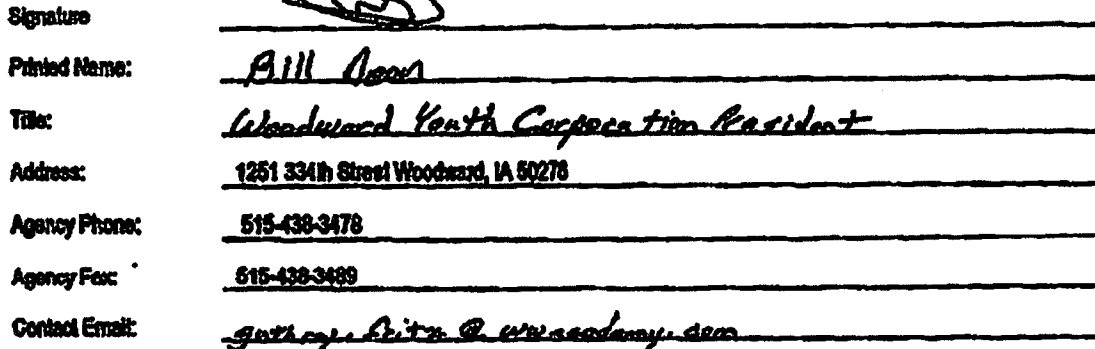 Signature
Printed Name: Bill
Title: Woodward Youth Corporation President
Address: 1251 334th Street Woodward, IA 50276
Agency Phone: 515-438-3478
Agency Fax: 515-438-3489
Contact Email: